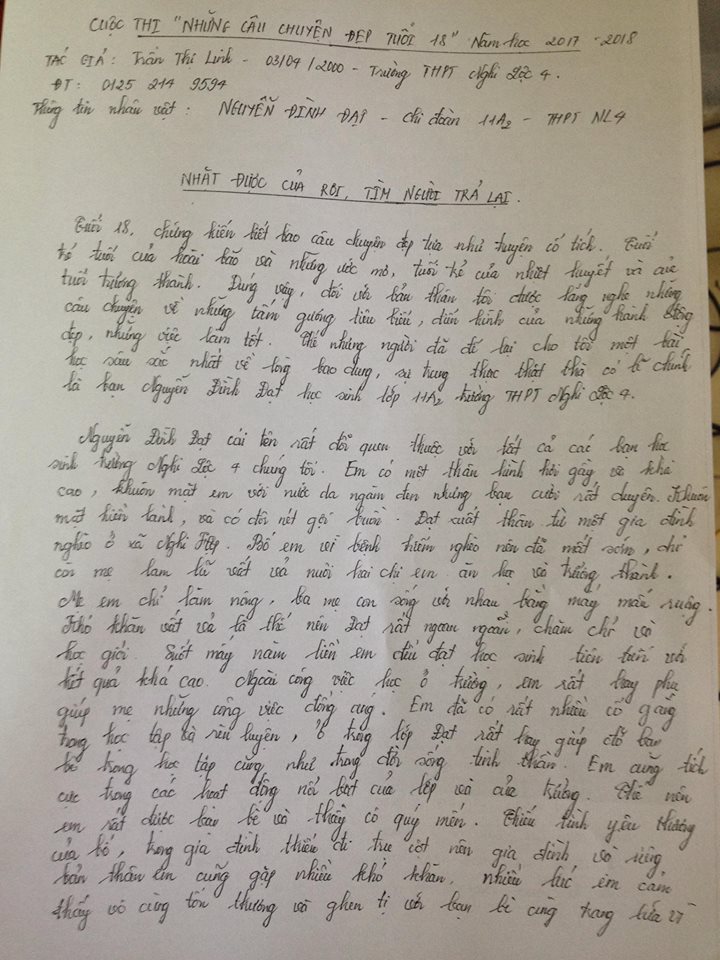 CUỘC THI "NHỮNG CÂU CHUYỆN ĐẸP TUỔI 18" Năm học 2017 - 2018
TÁC GIẢ: Trần Thị Linh - 03/04/2000 - Trường THPT Nghi Lộc 4.
ĐT: 0125 214 9594
Thông tin nhân vật: NGUYỄN ĐÌNH ĐẠT - Chi đoàn 11A2 - THPT NL4
NHẶT ĐƯỢC CỦA RƠI, TÌM NGƯỜI TRẢ LẠI.
Tuổi 18, chứng kiến biết bao câu chuyện đẹp tựa như truyện cổ tích. Tuổi
trẻ tuổi của hoài bão và những ước mơ, tuổi trẻ của nhiệt huyết và của
tuổi trưởng thành. Đúng vậy, đối với bản thân tôi được lắng nghe những
câu chuyện về những tấm gương tiêu biểu, điển hình của những hành động
đẹp, những việc làm tốt. Thế nhưng người đã để lại cho tôi một bài
học sâu sắc nhất về lòng bao dung, sự trung thực thật thà có lẽ chính
là bạn Nguyễn Đình Đạt học sinh lớp 11A2 trường THPT Nghi Lộc 4.
Nguyễn Đình Đạt cái tên rất đỗi quen thuộc với tất cả các bạn học
sinh trường Nghi Lộc 4 chúng tôi. Em có một thân hình hơi gầy và khá
cao, khuôn mặt em với nước da ngăm đen nhưng bạn cười rất duyên. Khuôn
mặt hiền lành, và có đôi nét gợi buồn. Đạt xuất thân từ một gia đình
nghèo ở xã Nghi . Bố em vì bệnh hiểm nghèo nên đã mất sớm, chỉ
còn mẹ lam lũ vất vả nuôi hai chị em ăn học và trưởng thành.
Mẹ em chỉ làm nông, ba mẹ con sống với nhau bằng mấy mẫu ruộng.
Khó khăn vất vả là thế nên Đạt rất ngoan ngoãn, chăm chỉ và
học giỏi. Suốt mấy năm liền em đều đạt học sinh tiên tiến với
kết quả khá cao. Ngoài công việc học ở trường, em rất hay phụ
giúp mẹ những công việc đồng áng. Em đã có rất nhiều cố gắng
trong học tập và rèn luyện, ở trong lớp Đạt rất hay giúp đỡ bạn
bè trong học tập cũng như trong đời sống tinh thần. Em cũng tích
cực trong các hoạt động nổi bật của lớp và của trường. Thế nên
em rất được bạn bè và thầy cô quý mến. Thiếu tình yêu thương
của bố, trong gia đình thiếu đi trụ cột nên gia đình và riêng
bản thân em cũng gặp nhiều khó khăn, nhiều lúc em cảm
thấy vô cùng tổn thương và ghen tị với bạn bè cùng trang lứa vì